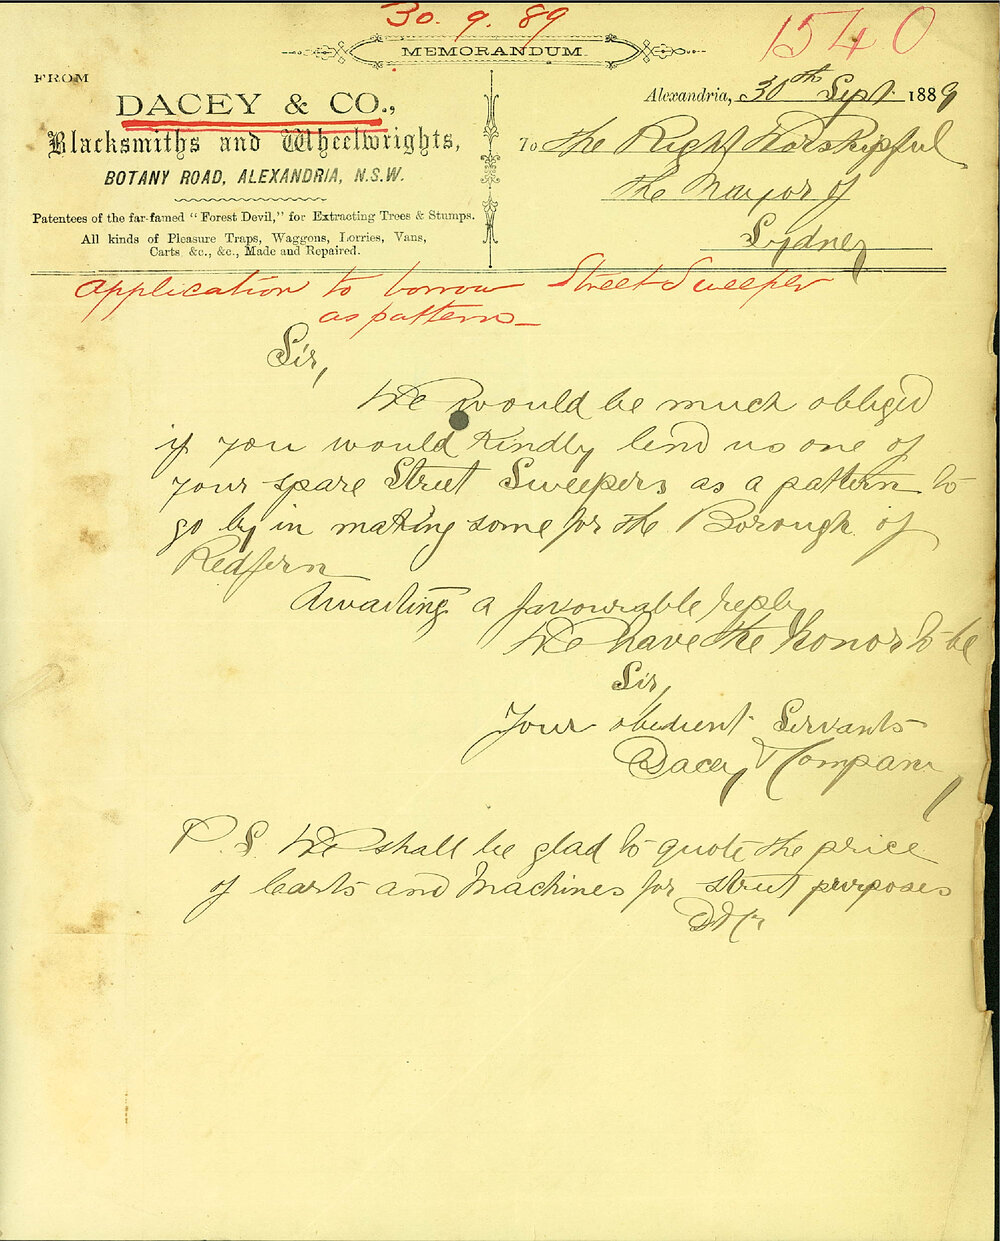 30.9.89
1540
MEMORANDUM.
FROM
DACEY & CO.,
Blacksmiths and Wheelwrights,
BOTANY ROAD, ALEXANDRIA, N.S.W.
Patentees of the far-famed "Forest Devil," for Extracting Trees & Stumps.
All kinds of Pleasure Traps, Waggons, Lorries, Vans,
Carts &c., &c., Made and Repaired.
Alexandria, 30th Sept. 1889
To the Right Worshipful
the Mayor of
Sydney
Application to borrow Street Sweeper
as pattern
Sir,
We would be much obliged
if you would kindly lend us one of
your spare Street Sweepers as a pattern to
go by in making some for the Borough of
Redfern
Awaiting a favourable reply
We have the honor to be
Sir,
Your obedient Servants
Dacey & Company
P.S. We shall be glad to quote the price
of Carts and Machines for street purposes
D & Co